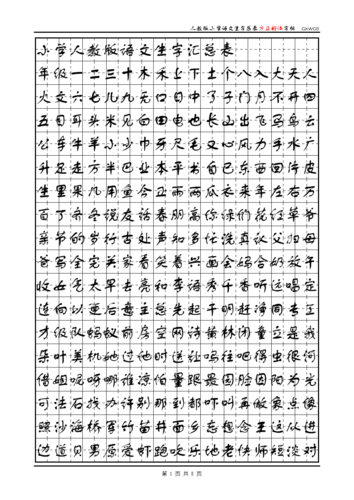 小学人教版语文生字汇总表
年级一二三十木禾上下土个八入大天人
火文六七儿九无口日中了子门月不开四
五目耳头米见白田电也长山出飞马鸟云
公车牛羊小少巾牙尺毛又心风力手水广
升足走方半巴业本平书自己东西回片皮
生里果几用鱼今正雨两瓜衣来年左右万
百丁齐冬说友话春朋高你绿们花红草爷
亲节的岁行古处声知多忙洗真认父扫母
爸写全完关家看笑着兴画会妈合奶放午
收女气太早去亮和李语秀千香听远唱定
连向以更后意主总先起干明赶净同专工
才级队蚂蚁前房空网诗黄林闭童立是我
朵叶美机她过他时送让吗往吧得虫很河
借姐呢呀哪谁凉怕量跟最园脸因阳为光
可法石找办许别那到都吓叫再做象点像
照沙海桥军竹苗井面乡忘想念王这从进
边道贝男原爱虾跑吹乐地老快师短淡对
第 1 页 共 8 页